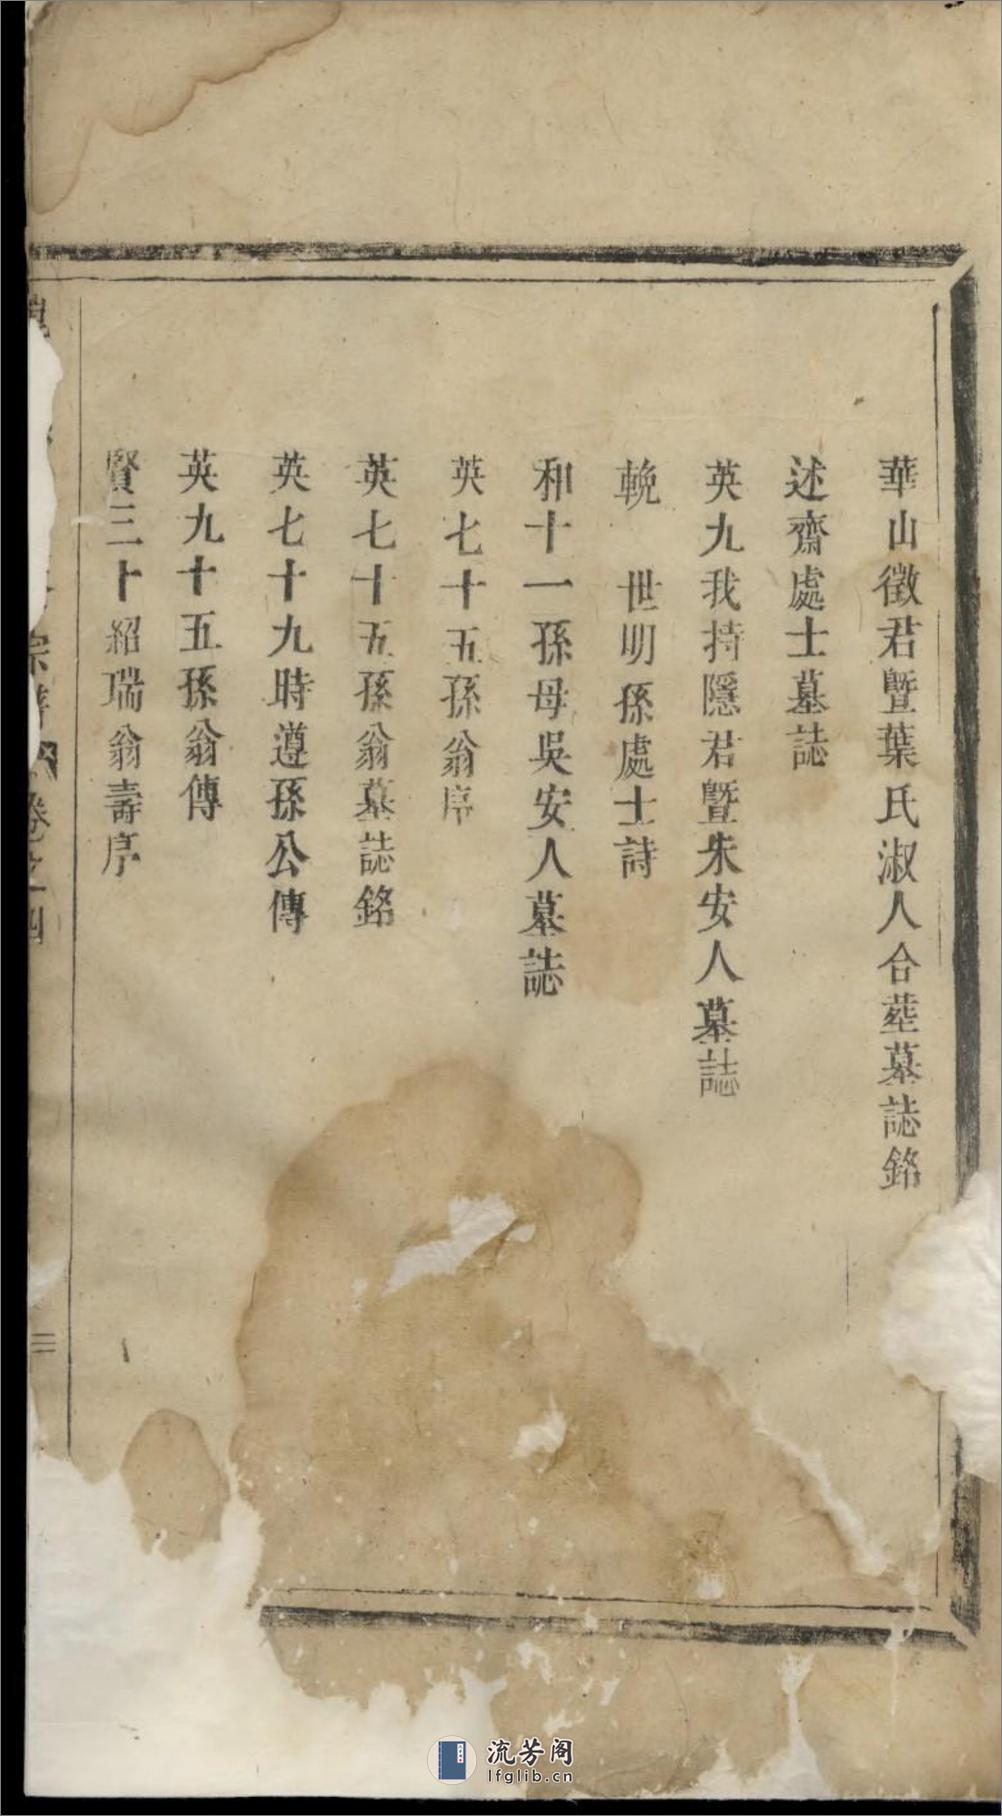 華山徵君暨葉氏淑人合塟墓誌銘
述齋處士墓誌
英九我持隱君暨朱安人墓誌
輓　世明孫處士詩
和十一孫母吳安人墓誌
英七十五孫翁序
英七十五孫翁墓誌銘
英七十九時遵孫公傳
英九十五孫翁傳
賢三十紹瑞翁壽序
宗譜 卷之四 二
流芳阁
lfglib.cn